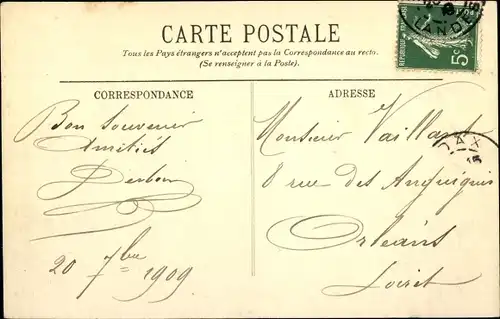 CARTE POSTALE
Tous les Pays étrangers n'acceptent pas la Correspondance au recto.
(Se renseigner à la Poste).
CORRESPONDANCE
Bon Souvenir
Amitiés
20 7bre 1909
ADRESSE
Monsieur Vaillant
8 rue des Anguignis
Orléans
Loiret
5c
LANDES
DAX